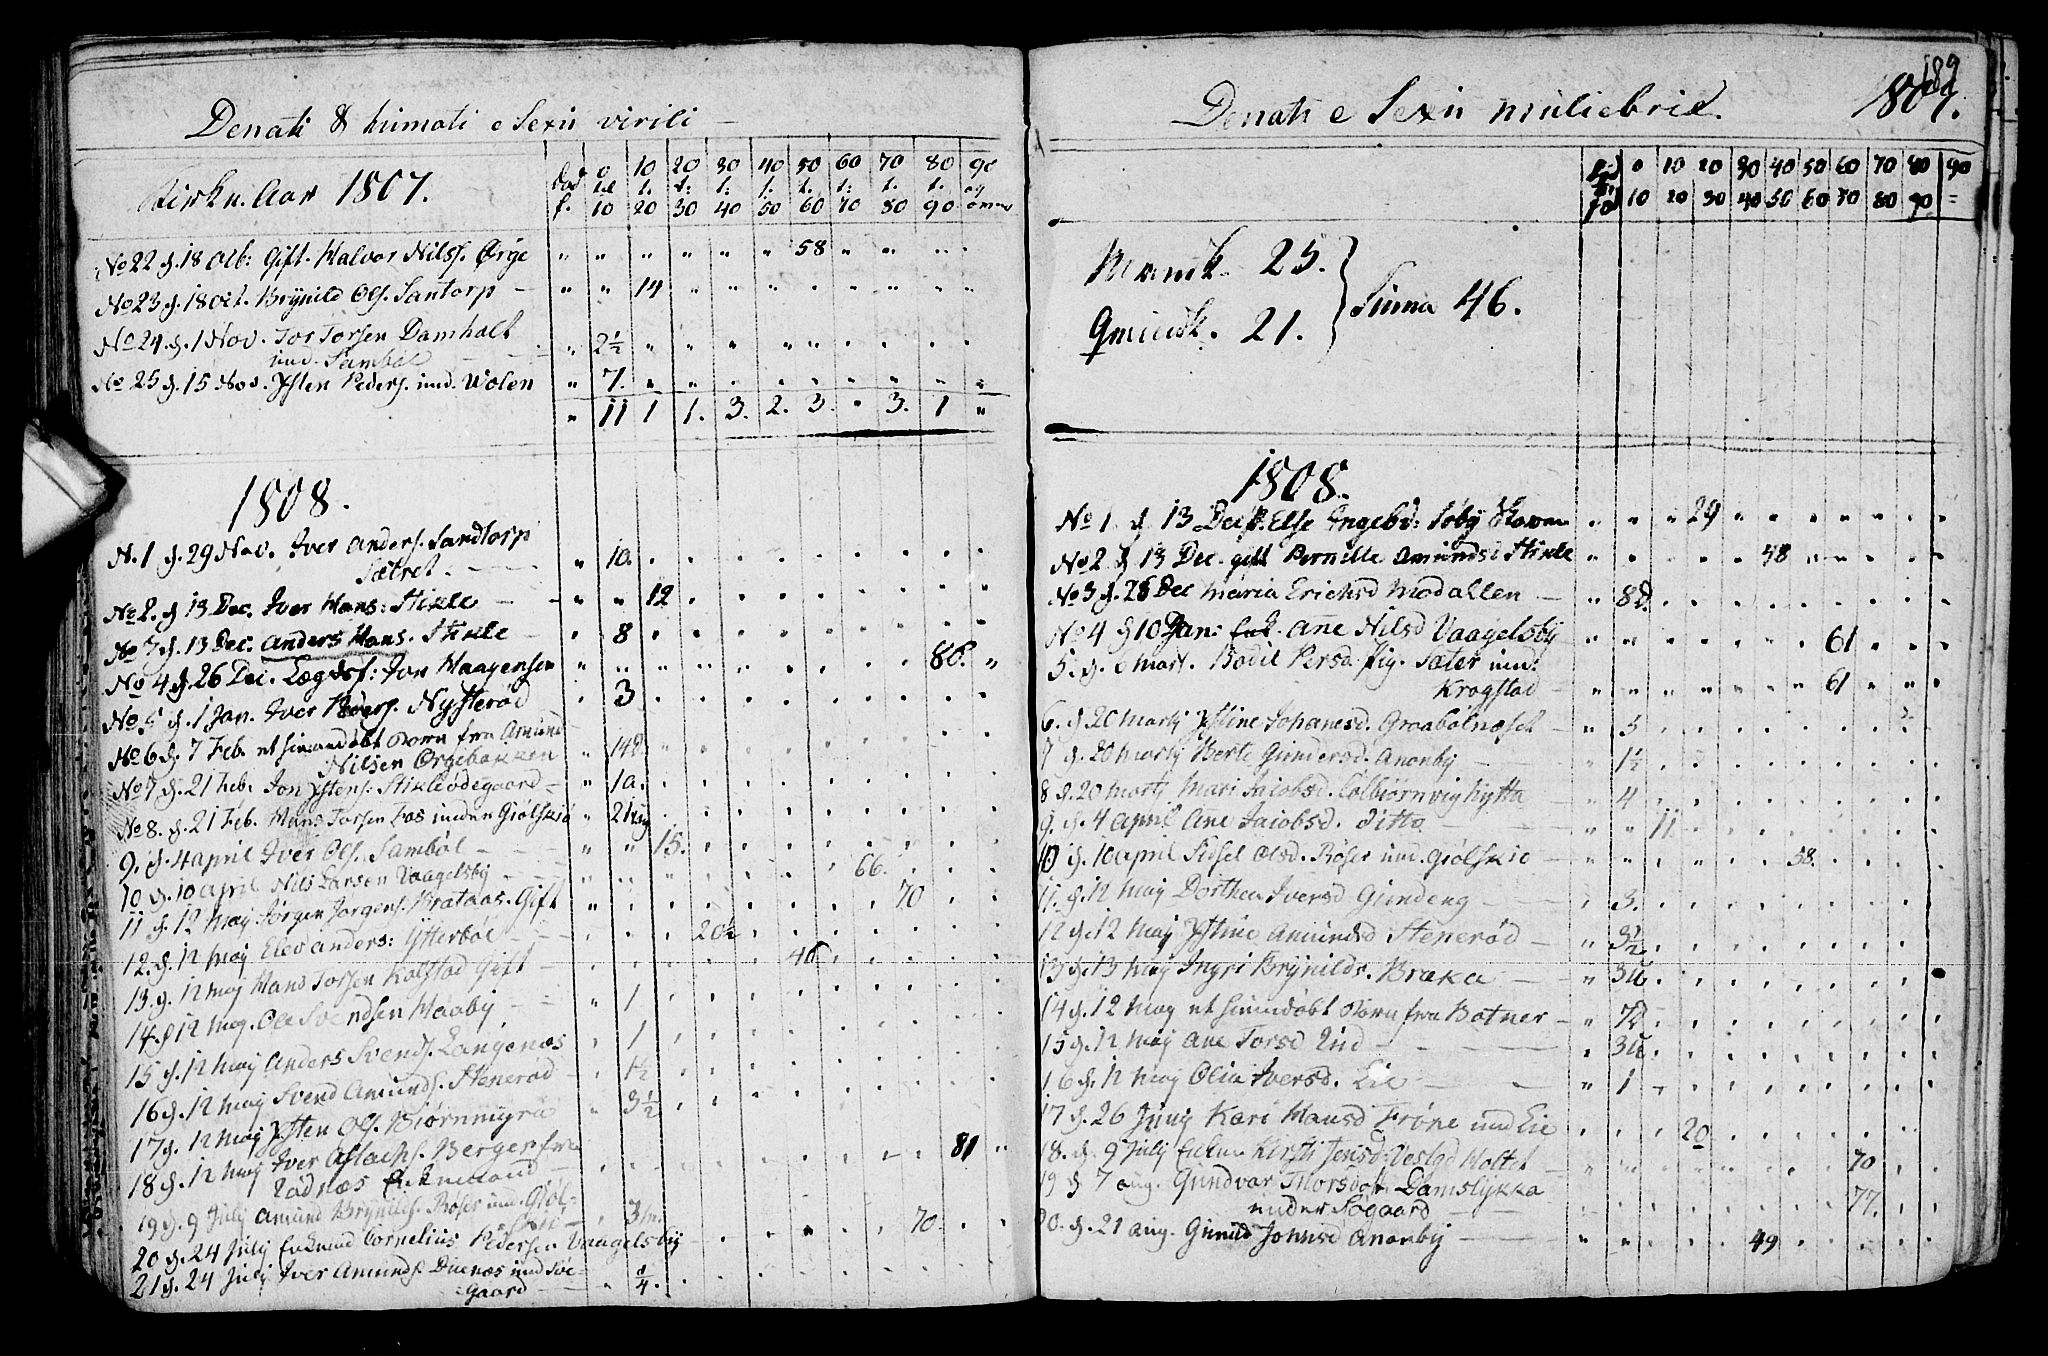 Denati & humati e Sexu virili
Kirkn. Aar 1807.
død f. 0 til 10 10 t. 20 20 t. 30 30 t. 40 40 t. 50 50 t. 60 60 t. 70 70 t. 80 80 t. 90 90 og
No 22 d. 18 Octb: Gift. Halvor Nilss. Ørge 58
No 23 d. 18 Oct. Brynild Ols. Santorp 14
No 24. d. 1 Nov. Tor Torsen Damholt 2½
und. Sambøl
No 25 d. 15 Nov. Ysten Peders. und. Wolen 7.
11 1 1. 3. 2. 3. 3. 1
1808.
N. 1 d. 29 Nov. Iver Anders. Sandtorp
Sætret. 10.
No 2. d 13 Dec. Iver Hans: Stikle 12
No 3 d. 13 Dec. Anders Hans. Stikle 8
No 4 d. 26 Dec. Lægdsf: Jon Haagensen 86.
No 5 d. 1 Jan. Iver Peders. Nysterød 3
No 6 d. 7 Feb. et hiemdøbt Barn fra Amund
Nilsen Ørgebakken 14d.
No 7 d. 21 Feb. Jon Ystens: Stikleødegaard 10.
No 8. d. 21 Feb. Hans Torsen Fos under Giølskiø 21
9. d. 4 april Iver Ols. Sambøl 15.
10 d. 10 april Nils Larsen Vaagelsby 66.
11 d. 12 May Jørgen Jørgens. Brataas. Gift 70
12. d. 12 May Elev Anders: Ytterbøl 20½
13. d. 12 may Hans Torsen Kolstad Gift 46
14. d 12 may. Ole Svendsen Haaby 1
15 d. 12 may Anders Svends. Langenæs 1
16 d. 12 may Svend Amunds. Stenerød 1½
17 d. 12 may Ysten Ols. Biørnmyra 3½
18 d. 12 may Iver Aslachs. Berger fra
Rødnæs Enkemand 81
19 d. 9 July Amund Brynilds. Røser und. Giøl-
skiø 3m.
20 d. 24 July Enkemd Cornelius Pedersen Vaagelsby 70.
21 d. 24 July Iver Amunds. Duenæs und Sø-
gaard ¼.
189
Denati e Sexu muliebrie. 1807.
0 10 20 30 40 50 60 70 80 90
10 20 30 40 50 60 70 80 90
Mandk. 25.
Qvindk. 21. } Suma 46.
1808.
No 1 d 13 Dec. Else Engebr: Søby 29
No 2 d 13 Dec. gift Pernille Amundsd Stikle 48
No 3 d. 26 Dec Maria Erichsd Modallen 8d.
No 4 d 10 Jan: Enk. Ane Nilsd Vaagelsby 61
5. d. 6 Mart. Bodil Persd. Pig. Sæter und:
Krogstad 61
6. d. 20 Martj Ystine Johanesd. Graabølnæset 5
7 d. 20 Martj Berte Gundersd. Anonby 1½
8 d. 20 Martj Mari Jacobsd. Kolbiørnvighytta 4
9. d. 4 April Ane Jacobsd. Ditto 11
10 d. 10 april Sidsel Olsd. Røser und. Giølskiø 58.
11. d. 12 May Dorthea Iversd Gundeng 3.
12 d. 12 May Ystine Amundsd Stenerød 3½
13 d. 13 May Ingri Brynildr. Braka 3u.
14 d. 12 May et hiemdøbt Barn fra Botner 7d.
15 d. 12 May Ane Torsd Lind 3u.
16 d. 12 May Olia Iversd. Lie 1
17 d. 26 Juny Kari Hansd Frøne und Lie 20
18. d. 9 July Enken Kirsti Jensd: Vestgd Holtet 70
19 d 7 aug. Gundvor Thorsdat Damslykka
under Søgaard 77.
20. d. 21 aug. Gunild Johnsd Anonby 49